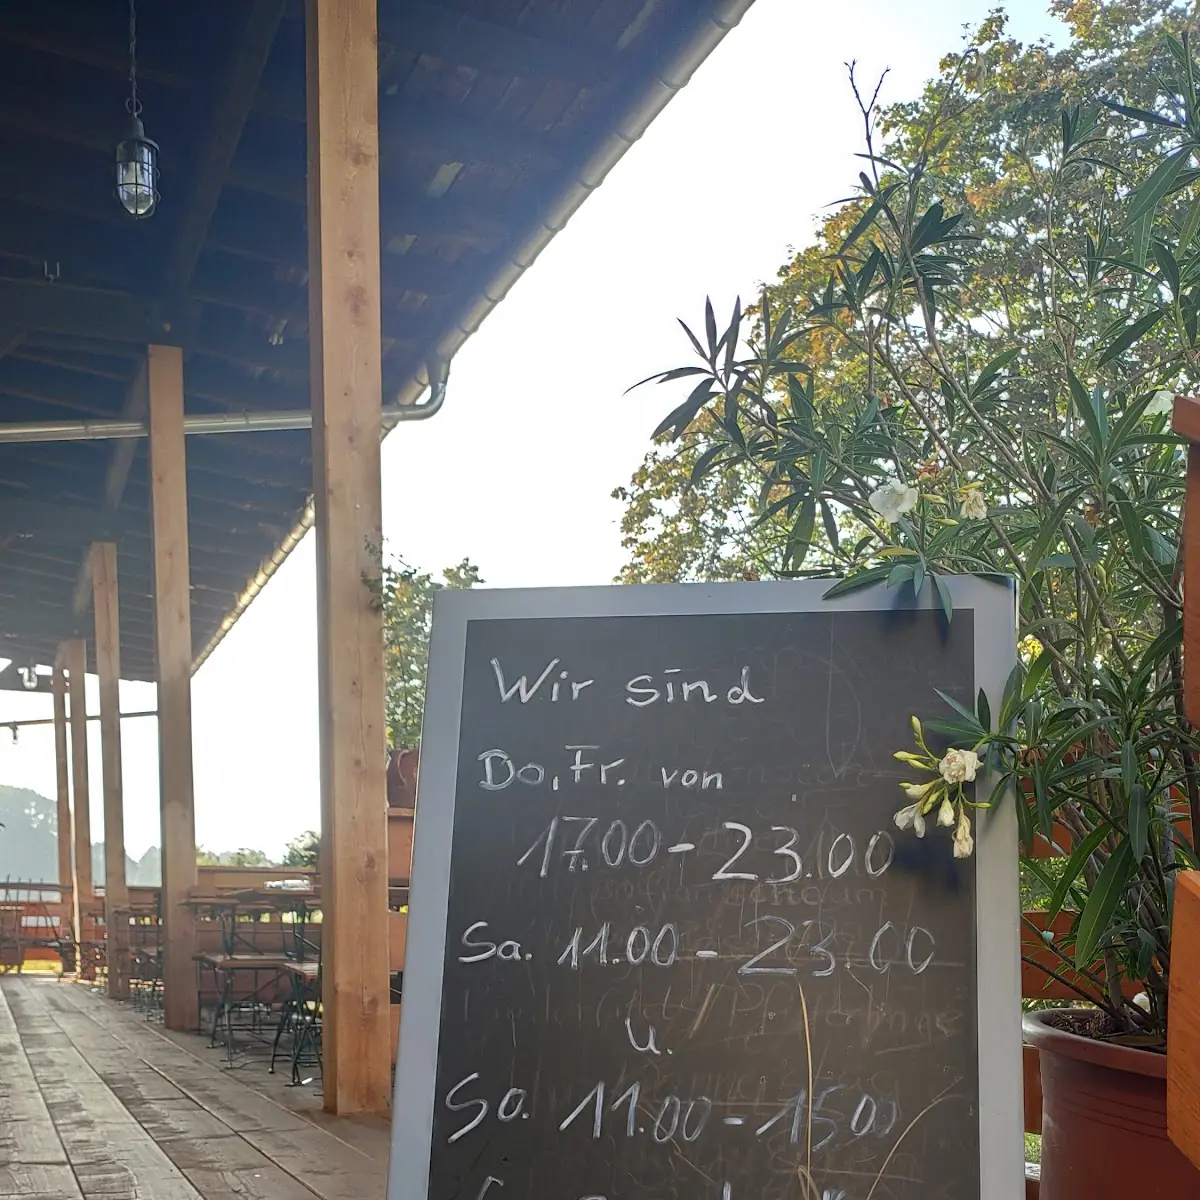 Wir sind
Do, Fr. von
17.00 - 23.00
Sa. 11.00 - 23.00
u.
So. 11.00 - 15.00